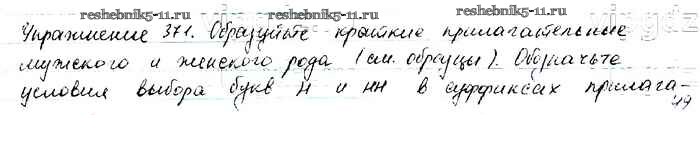 reshebnik5-11.ru reshebnik5-11.ru
Упражнение 371. Образуйте краткие прилагательные
мужского и женского рода (см. образцы). Обозначьте
условия выбора букв н и нн в суффиксах прилага-
reshebnik5-11.ru reshebnik5-11.ru